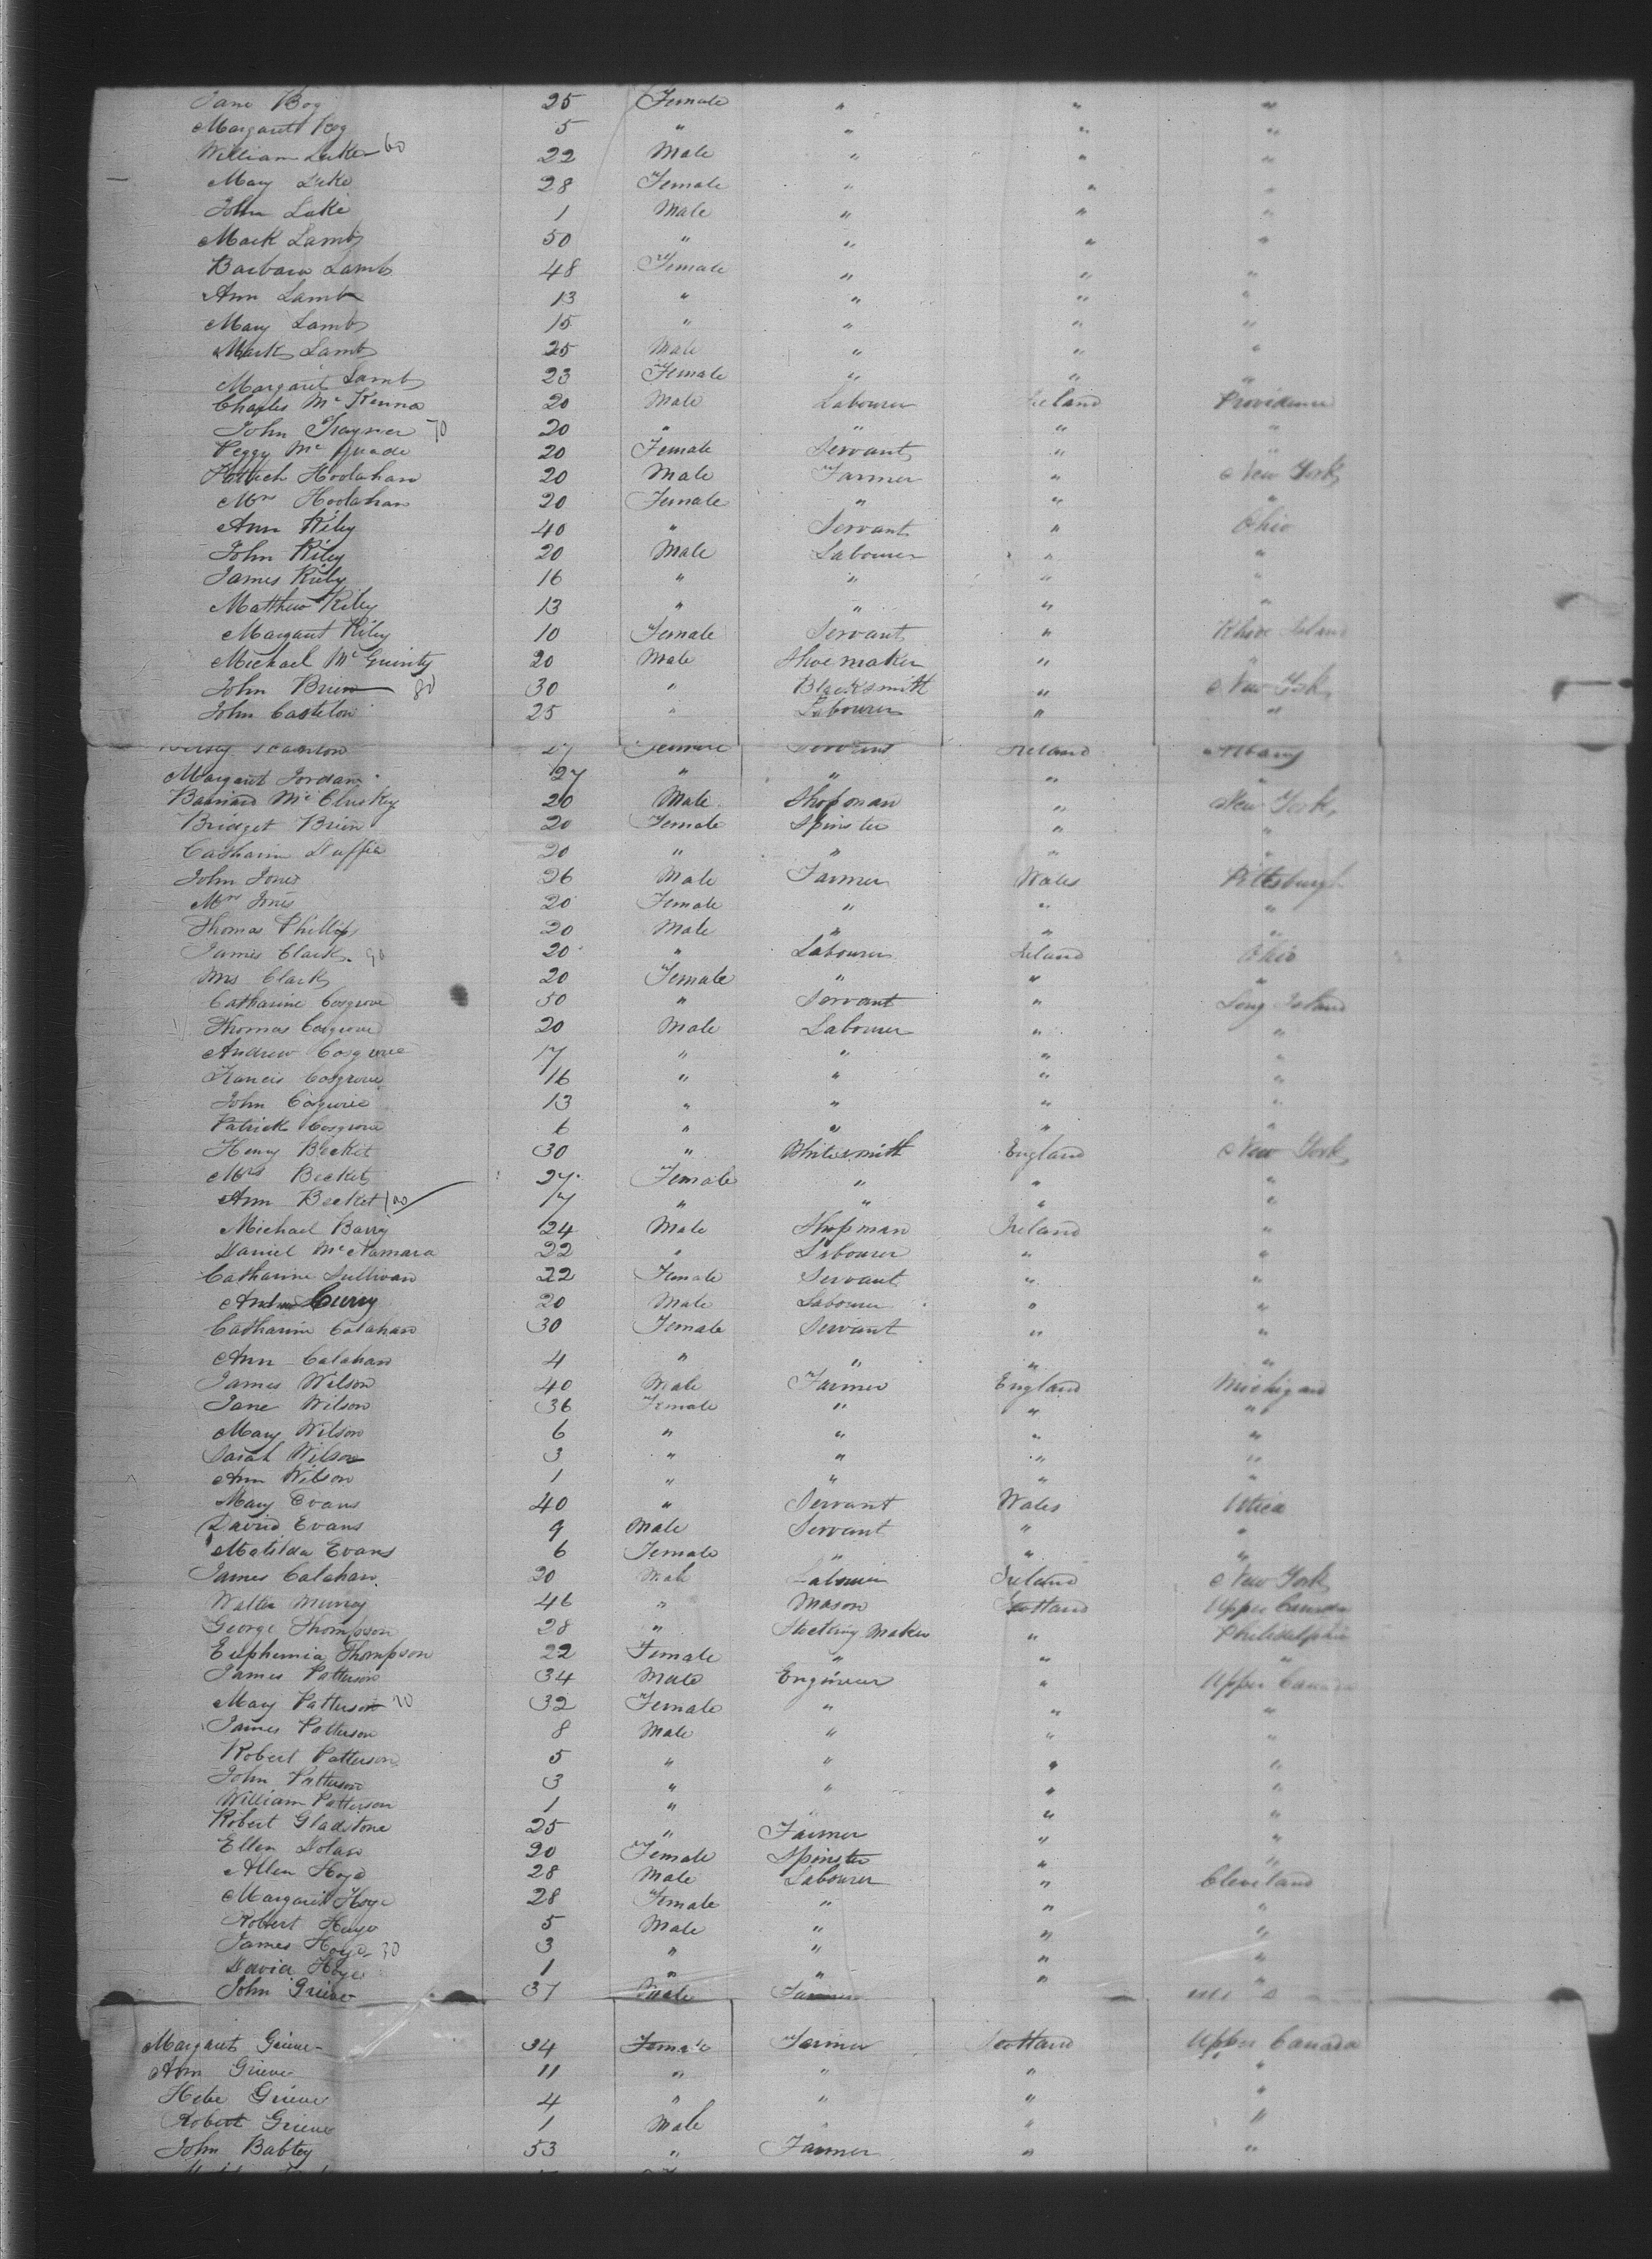 Jane Bog 25 Female " " "
Margaret Bog 5 " " " "
William Luke 60 22 Male " " "
Mary Luke 28 Female " " "
John Luke 1 Male " " "
Mark Lamb 50 " " " "
Barbara Lamb 48 Female " " "
Ann Lamb 13 " " " "
Mary Lamb 15 " " " "
Mark Lamb 25 Male " " "
Margaret Lamb 23 Female " " "
Charles McKenna 20 Male Labourer Ireland Providence
John Traynor 70 20 " " " "
Peggy McQuade 20 Female Servant " "
Patrick Hoolahan 20 Male Farmer " New York
Mrs Hoolahan 20 Female " " "
Ann Riley 40 " Servant " Ohio
John Riley 20 Male Labourer " "
James Riley 16 " " " "
Matthew Riley 13 " " " "
Margaret Riley 10 Female Servant " Rhode Island
Michael McGuinty 20 Male Shoemaker " "
John Brien 80 30 " Blacksmith " New York
John Castelow 25 " Labourer " "
27 Female Servant Ireland Albany
Margaret Jordan 27 " " " "
Barnard McCluskey 20 Male Shopman " New York
Bridget Brien 20 Female Spinster " "
Catharine Duffie 20 " " " "
John Jones 26 Male Farmer Wales Pittsburgh
Mrs Jones 20 Female " " "
Thomas Phillips 20 Male " " "
James Clark 90 20 " Labourer Ireland Ohio
Mrs Clark 20 Female " " "
Catharine Cosgrove 50 " Servant " Long Island
Thomas Cosgrove 20 Male Labourer " "
Andrew Cosgrove 17 " " " "
Francis Cosgrove 16 " " " "
John Cosgrove 13 " " " "
Patrick Cosgrove 6 " " " "
Henry Becket 30 " Whitesmith England New York
Mrs Becket 27 Female " " "
Ann Becket 100 17 " " " "
Michael Barry 24 Male Shopman Ireland "
Daniel McNamara 22 " Labourer " "
Catharine Sullivan 22 Female Servant " "
Andrew Curry 20 Male Labourer " "
Catharine Calahan 30 Female Servant " "
Ann Calahan 4 " " " "
James Wilson 40 Male Farmer England Michigan
Jane Wilson 36 Female " " "
Mary Wilson 6 " " " "
Sarah Wilson 3 " " " "
Ann Wilson 1 " " " "
Mary Evans 40 " Servant Wales Utica
David Evans 9 Male Servant " "
Matilda Evans 6 Female " " "
James Calahan 20 Male Labourer Ireland New York
Walter Murray 46 " Mason Scotland Upper Canada
George Thompson 28 " Stocking Maker " Philidelphia
Euphemia Thompson 22 Female " " "
James Patterson 34 Male Engineer " Upper Canada
Mary Patterson 20 32 Female " " "
James Patterson 8 Male " " "
Robert Patterson 5 " " " "
John Patterson 3 " " " "
William Patterson 1 " " "
Robert Gladstone 25 " Farmer " "
Ellen Dolan 20 Female Spinster " "
Allen Hoge 28 Male Labourer " Cleveland
Margaret Hoge 28 Female " " "
Robert Hoge 5 Male " " "
James Hoge 30 3 " " " "
David Hoge 1 " " " "
John Grieve 37 Male Farmer
Margaret Grieve 34 Female Farmer Scotland Upper Canada
Ann Grieve 11 " " " "
Hebe Grieve 4 " " " "
Robert Grieve 1 Male " " "
John Babtey 53 " Farmer " "